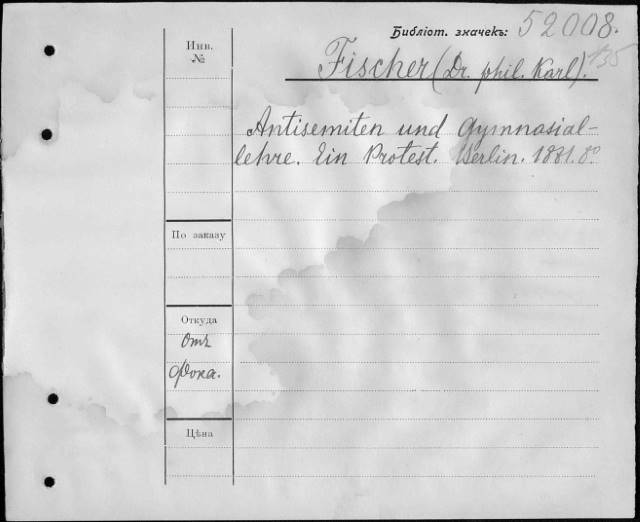 Библіот. значекъ: 52008.
135
Инв.
№
Fischer (Dr. phil. Karl).
Antisemiten und Gymnasial-
lehre. Ein Protest. Berlin. 1881. 8º
По заказу
Откуда
Отъ
Фока.
Цѣна